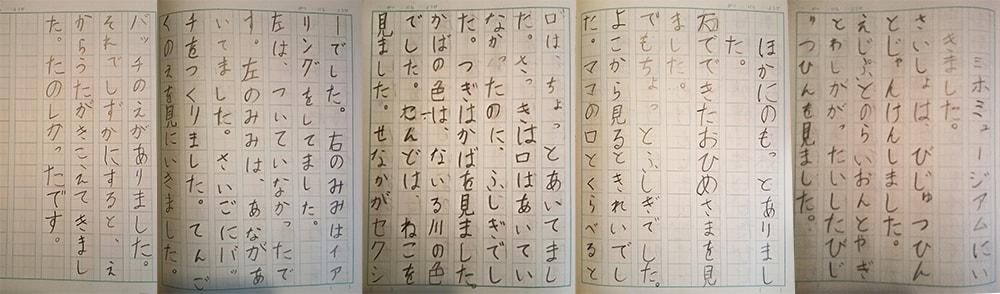 ミホミュージアムにい
きました。
さいしょは、びじゅつひん
とじゃんけんしました。
えじぷとのらいおんとやぎ
とわしががったいしたびじ
ゅつひんを見ました。
ほかにのもっとありまし
た。
石でできたおひめさまを見
ました。
でもちょっとふしぎでした。
よこから見るときれいでし
た。ママの口とくらべると
口は、ちょっとあいてまし
た。さっきは口はあいてい
なかったのに、ふしぎでし
た。つぎはかばを見ました。
かばの色は、ないる川の色
でした。せんどは、ねこを
見ました。せなかがセクシ
ーでした。右のみみはイア
リングをしてました。
左は、ついていなかったで
す。左のみみは、あながあ
いてました。さいごにバッ
チをつくりました。てんご
くのえを見にいきました。
バッチのえがありました。
それでしずかにすると、え
からうたがきこえてきまし
た。たのしかったです。